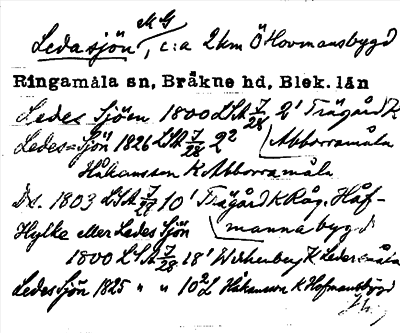 MG
Ledasjön, c:a 2 km Ö Hovmansbygd
Ringamåla sn, Bräkne hd, Blek. län
Ledes Sjön 1800 LSA 7/28 2' Trägård K
Ledes=Sjön 1826 LSA 7/28 2² Abborramåla
Håkansson K Abborramåla
Ds. 1803 LSA 7/27 10' Trägård K Råg. Håf-
Hylke eller Ledes Sjön mannabygd
1800 LSA 7/28 18' Wirkenberg K Ledesmåla
Ledes Sjön 1825 " " 10² L Håkanson K Hofmansbygd